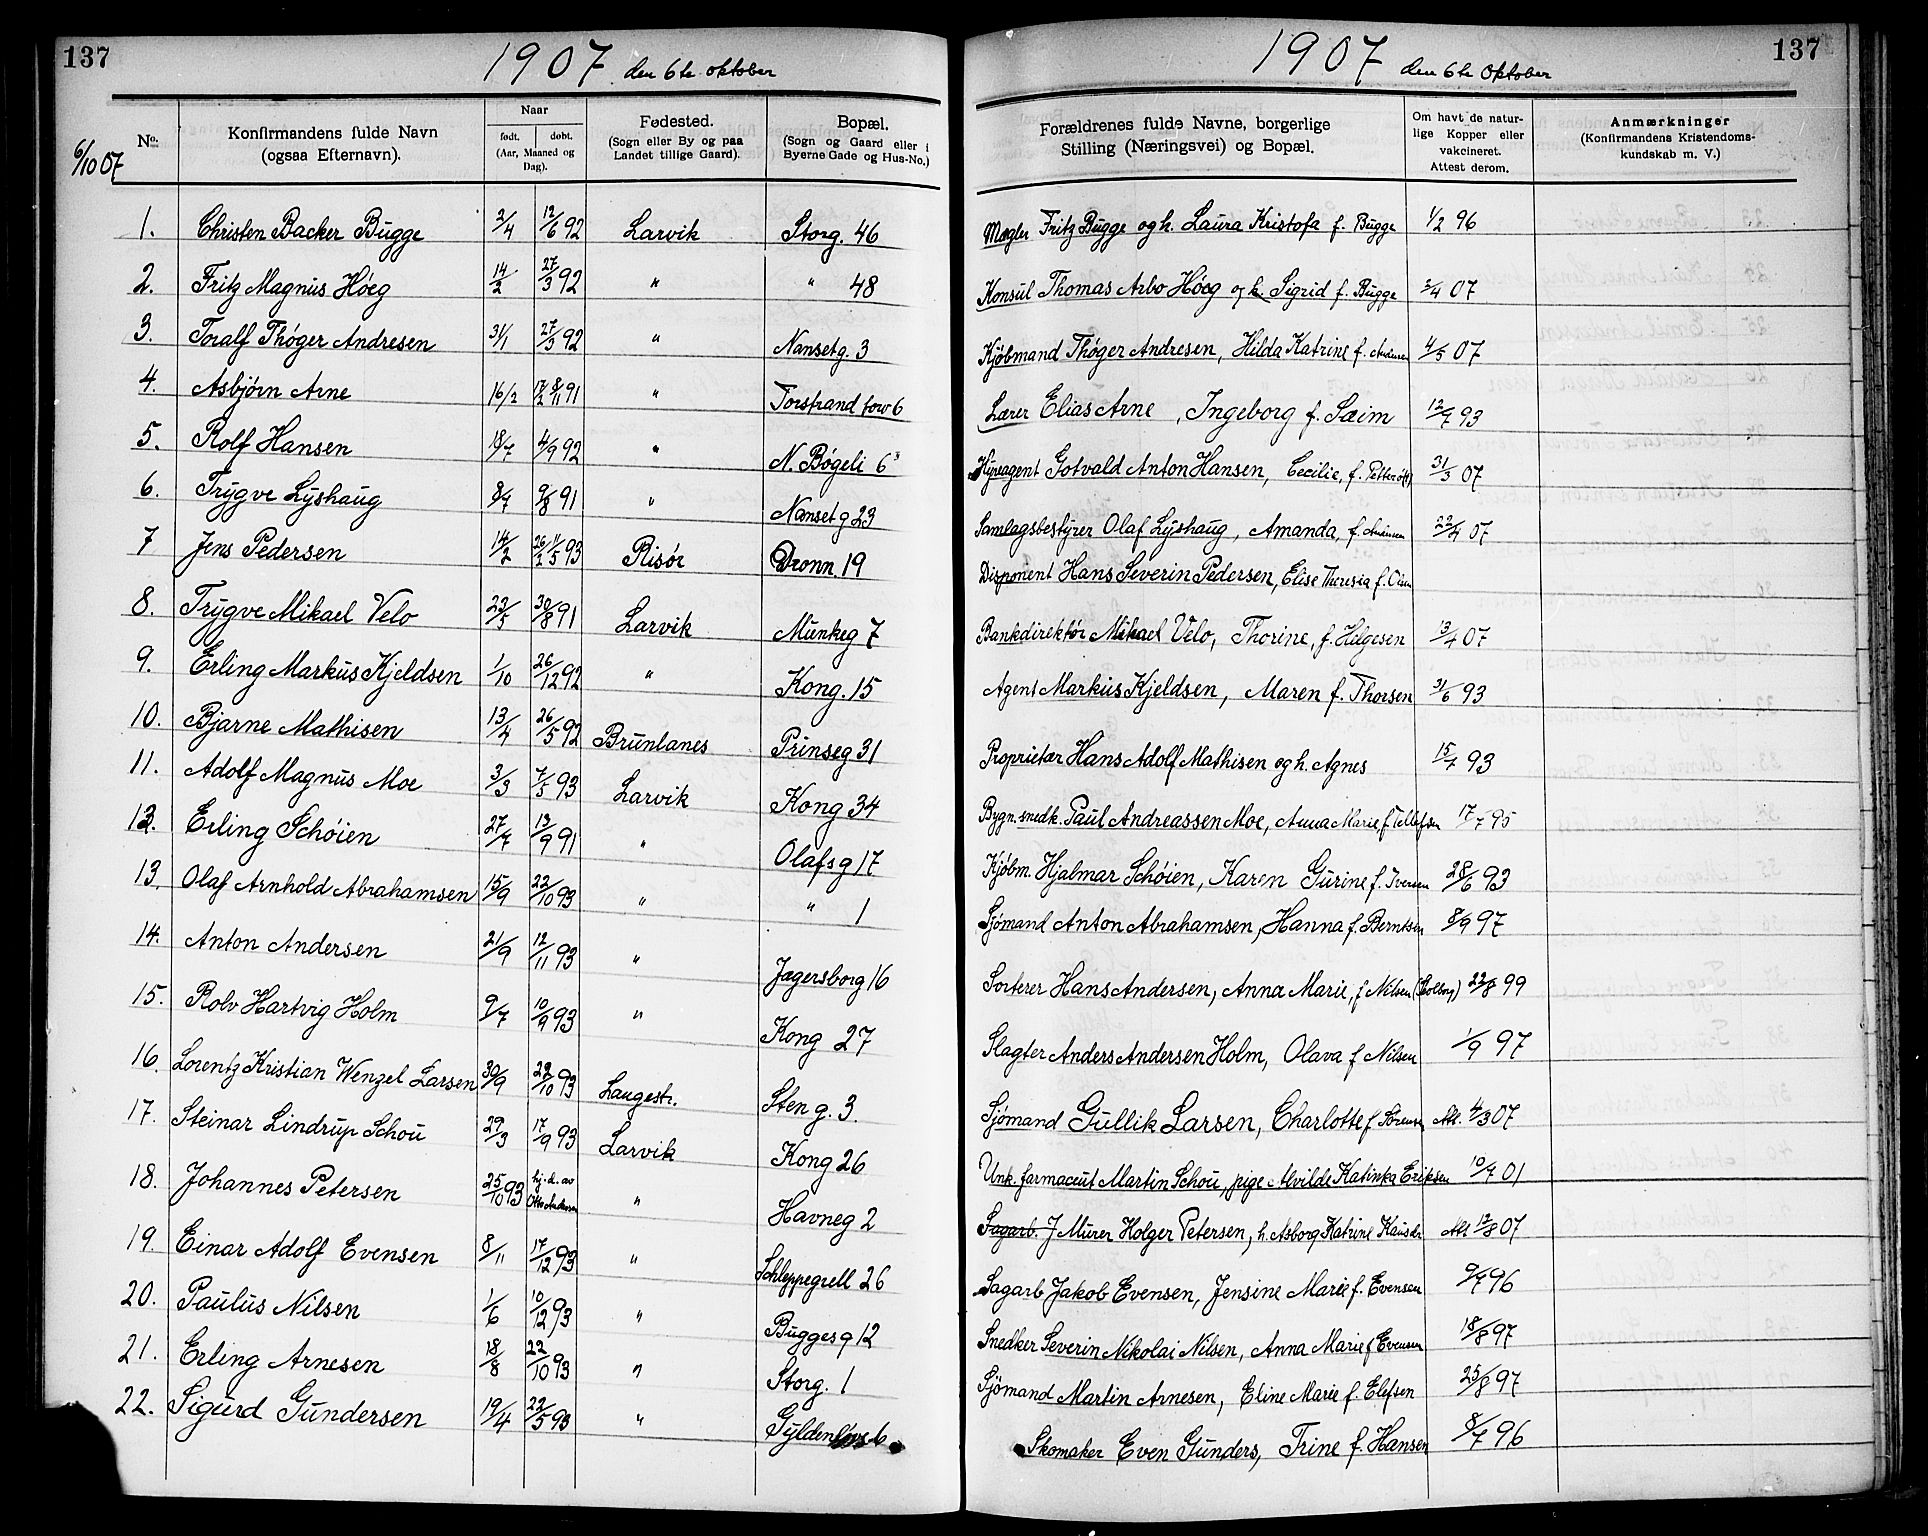 137
1907 den 6te oktober
6/10 07
No.
Konfirmandens fulde Navn
(ogsaa Efternavn).
Naar
født. døbt.
(Aar, Maaned og
Dag).
Fødested.
(Sogn eller By og paa
Landet tillige Gaard).
Bopæl.
(Sogn og Gaard eller i
Byerne Gade og Hus-No.)
1. Christen Backer Bugge 2/4 12/6 92 Larvik Storg. 46
2. Fritz Magnus Höeg 14/2 27/3 92 " " 48
3. Toralf Thøger Andresen 31/1 27/3 92 " Nansetg. 3
4. Asbjørn Arne 16/2 17/2 8/11 91 " Torstrand 6
5. Rolf Hansen 18/7 4/9 92 " N. Bøgeli 6
6. Trygve Lyshaug 8/7 9/8 91 " Nanset g 23
7 Jens Pedersen 14/2 26/2 11/5 93 Risör Dronn. 19
8. Trygve Mikael Velo 23/5 30/8 91 Larvik Munkeg 7
9. Erling Markus Kjeldsen 1/10 26/12 92 " Kong. 15
10. Bjarne Mathisen 13/4 26/5 92 Brunlanes Prinseg 31
11. Adolf Magnus Moe 3/3 7/5 93 Larvik Kong 34
12. Erling Schöien 27/7 13/9 91 " Olafsg 17
13. Olaf Arnhold Abrahamsen 15/9 22/10 93 " " 1
14. Anton Andersen 21/9 12/11 93 " Jegersborg 16
15. Rolv Hartvig Holm 9/7 10/9 93 " Kong 27
16. Lorentz Kristian Wenzel Larsen 30/9 22/10 93 Langestr. Sten g. 3.
17. Steinar Lindrup Schou 29/3 17/9 93 Larvik Kong 26
18. Johannes Petersen 25/10 93 hj.d. av Otto Andersen " Havneg 2
19. Einar Adolf Evensen 8/11 17/12 93 " Schleppegrell 26
20. Paulus Nilsen 1/6 10/12 93 " Bugges g 12
21. Erling Arnesen 18/8 22/10 93 " Storg. 1
22. Sigurd Gundersen 19/4 22/5 93 " Gyldenløves 6
1907 den 6te Oktober
137
Forældrenes fulde Navne, borgerlige
Stilling (Næringsvei) og Bopæl.
Om havt de natur-
lige Kopper eller
vakcineret.
Attest derom.
Anmærkninger
(Konfirmandens Kristendoms-
kundskab m. V.)
Mægler Fritz Bugge og h. Laura Kristofa f. Bugge 1/2 96
Konsul Thomas Arbo Höeg og h. Sigrid f. Bugge 3/4 07
Kjöbmand Thøger Andresen, Hilda Katrine f. Andresen 4/5 07
Lærer Elias Arne, Ingeborg f. Sæim 12/7 93
Hyreagent Gotvald Anton Hansen, Cecilie, f. Petterö 31/3 07
Samlagsbestyrer Olaf Lyshaug, Amanda, f. Andersen 22/4 07
Disponent Hans Severin Pedersen, Elise Theresia f. Olsen
Bankdirektör Mikael Velo, Thorine, f. Helgesen 13/4 07
Agent Markus Kjeldsen, Maren f. Thorsen 31/6 93
Proprietær Hans Adolf Mathisen og h. Agnes 15/7 93
Bygn. snedk. Paul Andreassen Moe, Anna Marie, f Tellefsen 17/7 95
Kjöbm. Hjalmar Schöien, Karen Gurine f. Iversen 28/6 93
Sjömand Anton Abrahamsen, Hanna f. Berntsen 8/9 97
Sorterer Hans Andersen, Anna Marie, f Nilsen 22/8 99
Slagter Anders Andersen Holm, Olava f Nilsen 1/9 97
Sjömand Gullik Larsen, Charlotte f Sörensen Att. 4/3 07
Unk. farmaceut Martin Schou, pige Alvilde Katinka Eriksen 10/7 01
Sagarb. J Murer Holger Petersen, h. Asborg Katrine Att 12/8 07
Sagarb Jakob Evensen, Jensine Marie f. Evensen 9/7 96
Snedker Severin Nikolai Nilsen, Anna Marie f Evensen 18/8 97
Sjömand Martin Arnesen, Eline Marie f. Elefsen 25/8 97
Skomaker Even Gunders, Trine f. Hansen 8/7 96